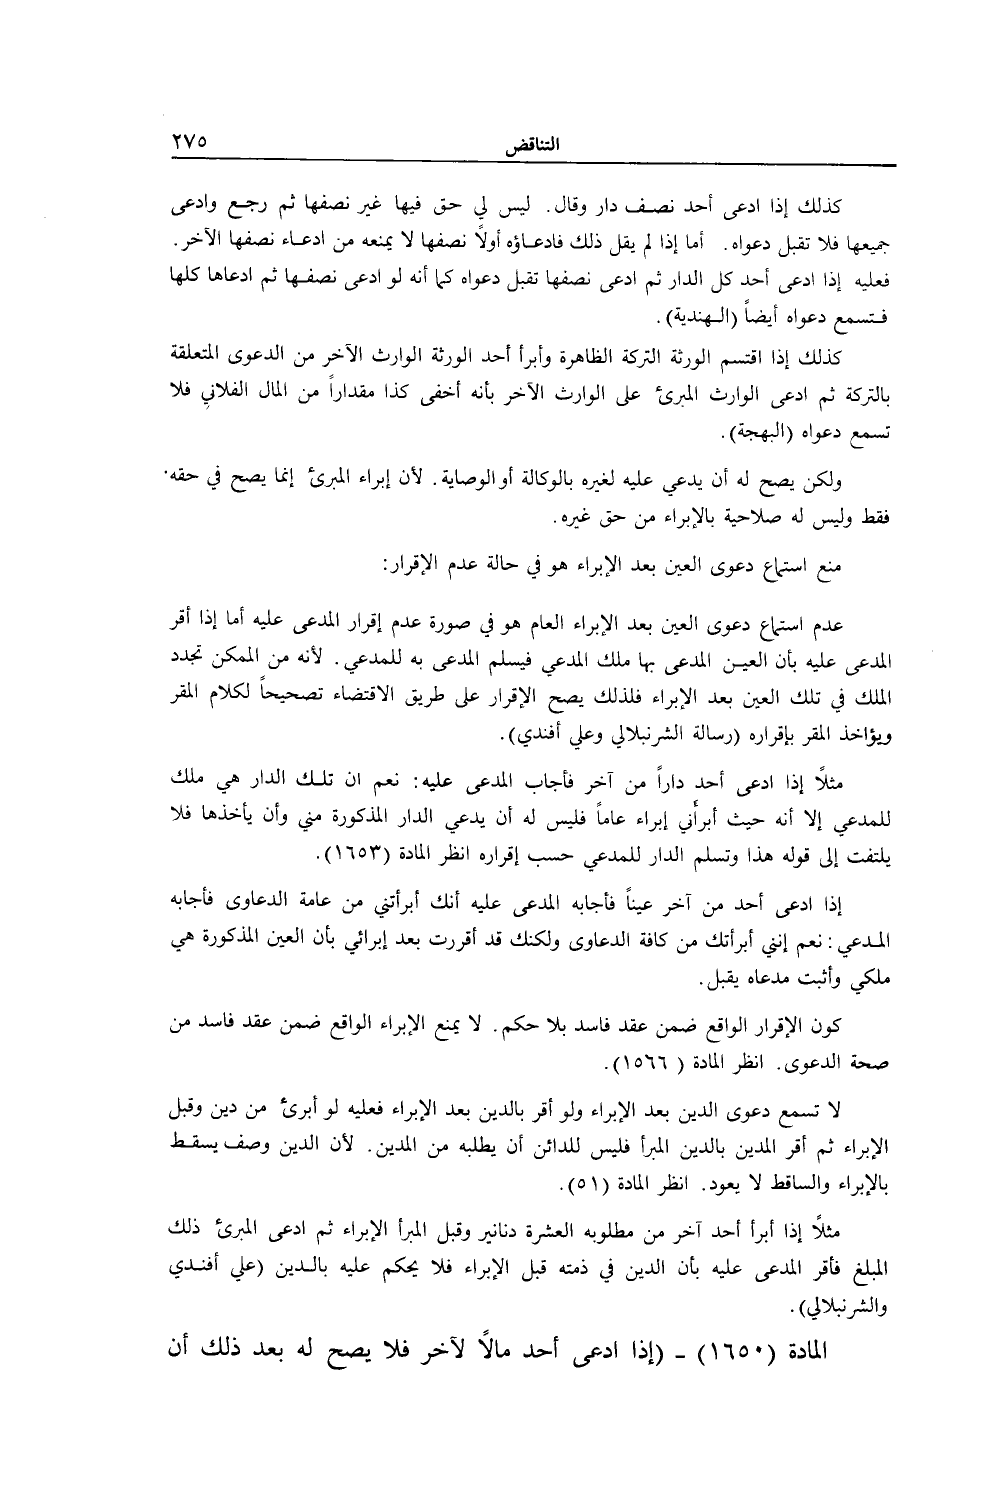 التناقض ٢٧٥
كذلك إذا ادعى أحد نصف دار وقال. ليس لي حق فيها غير نصفها ثم رجع وادعى
جميعها فلا تقبل دعواه. أما إذا لم يقل ذلك فادعاؤه أولاً نصفها لا يمنعه من ادعاء نصفها الآخر.
فعليه إذا ادعى أحد كل الدار ثم ادعى نصفها تقبل دعواه كما أنه لو ادعى نصفها ثم ادعاها كلها
فتسمع دعواه أيضاً (الهندية).
كذلك إذا اقتسم الورثة التركة الظاهرة وأبرأ أحد الورثة الوارث الآخر من الدعوى المتعلقة
بالتركة ثم ادعى الوارث المبرئ على الوارث الآخر بأنه أخفى كذا مقداراً من المال الفلاني فلا
تسمع دعواه (البهجة).
ولكن يصح له أن يدعي عليه لغيره بالوكالة أو الوصاية. لأن إبراء المبرئ إنما يصح في حقه
فقط وليس له صلاحية بالإبراء من حق غيره.
منع استماع دعوى العين بعد الإبراء هو في حالة عدم الإقرار:
عدم استماع دعوى العين بعد الإبراء العام هو في صورة عدم إقرار المدعى عليه أما إذا أقر
المدعى عليه بأن العين المدعى بها ملك المدعي فيسلم المدعى به للمدعي. لأنه من الممكن تجدد
الملك في تلك العين بعد الإبراء فلذلك يصح الإقرار على طريق الاقتضاء تصحيحاً لكلام المقر
ويؤاخذ المقر بإقراره (رسالة الشرنبلالي وعلي أفندي).
مثلًا إذا ادعى أحد داراً من آخر فأجاب المدعى عليه: نعم ان تلك الدار هي ملك
للمدعي إلا أنه حيث أبرأني إبراء عاماً فليس له أن يدعي الدار المذكورة مني وأن يأخذها فلا
يلتفت إلى قوله هذا وتسلم الدار للمدعي حسب إقراره انظر المادة (١٦٥٣).
إذا ادعى أحد من آخر عيناً فأجابه المدعى عليه أنك أبرأتني من عامة الدعاوى فأجابه
المدعي: نعم إنني أبرأتك من كافة الدعاوى ولكنك قد أقررت بعد إبرائي بأن العين المذكورة هي
ملكي وأثبت مدعاه يقبل.
كون الإقرار الواقع ضمن عقد فاسد بلا حكم. لا يمنع الإبراء الواقع ضمن عقد فاسد من
صحة الدعوى. انظر المادة ( ١٥٦٦).
لا تسمع دعوى الدين بعد الإبراء ولو أقر بالدين بعد الإبراء فعليه لو أبرئ من دين وقبل
الإبراء ثم أقر المدين بالدين المبرأ فليس للدائن أن يطلبه من المدين. لأن الدين وصف يسقط
بالإبراء والساقط لا يعود. انظر المادة (٥١).
مثلًا إذا أبرأ أحد آخر من مطلوبه العشرة دنانير وقبل المبرأ الإبراء ثم ادعى المبرئ ذلك
المبلغ فأقر المدعى عليه بأن الدين في ذمته قبل الإبراء فلا يحكم عليه بالدين (علي أفندي
والشرنبلالي).
المادة (١٦٥٠) ـ (إذا ادعى أحد مالًا لآخر فلا يصح له بعد ذلك أن